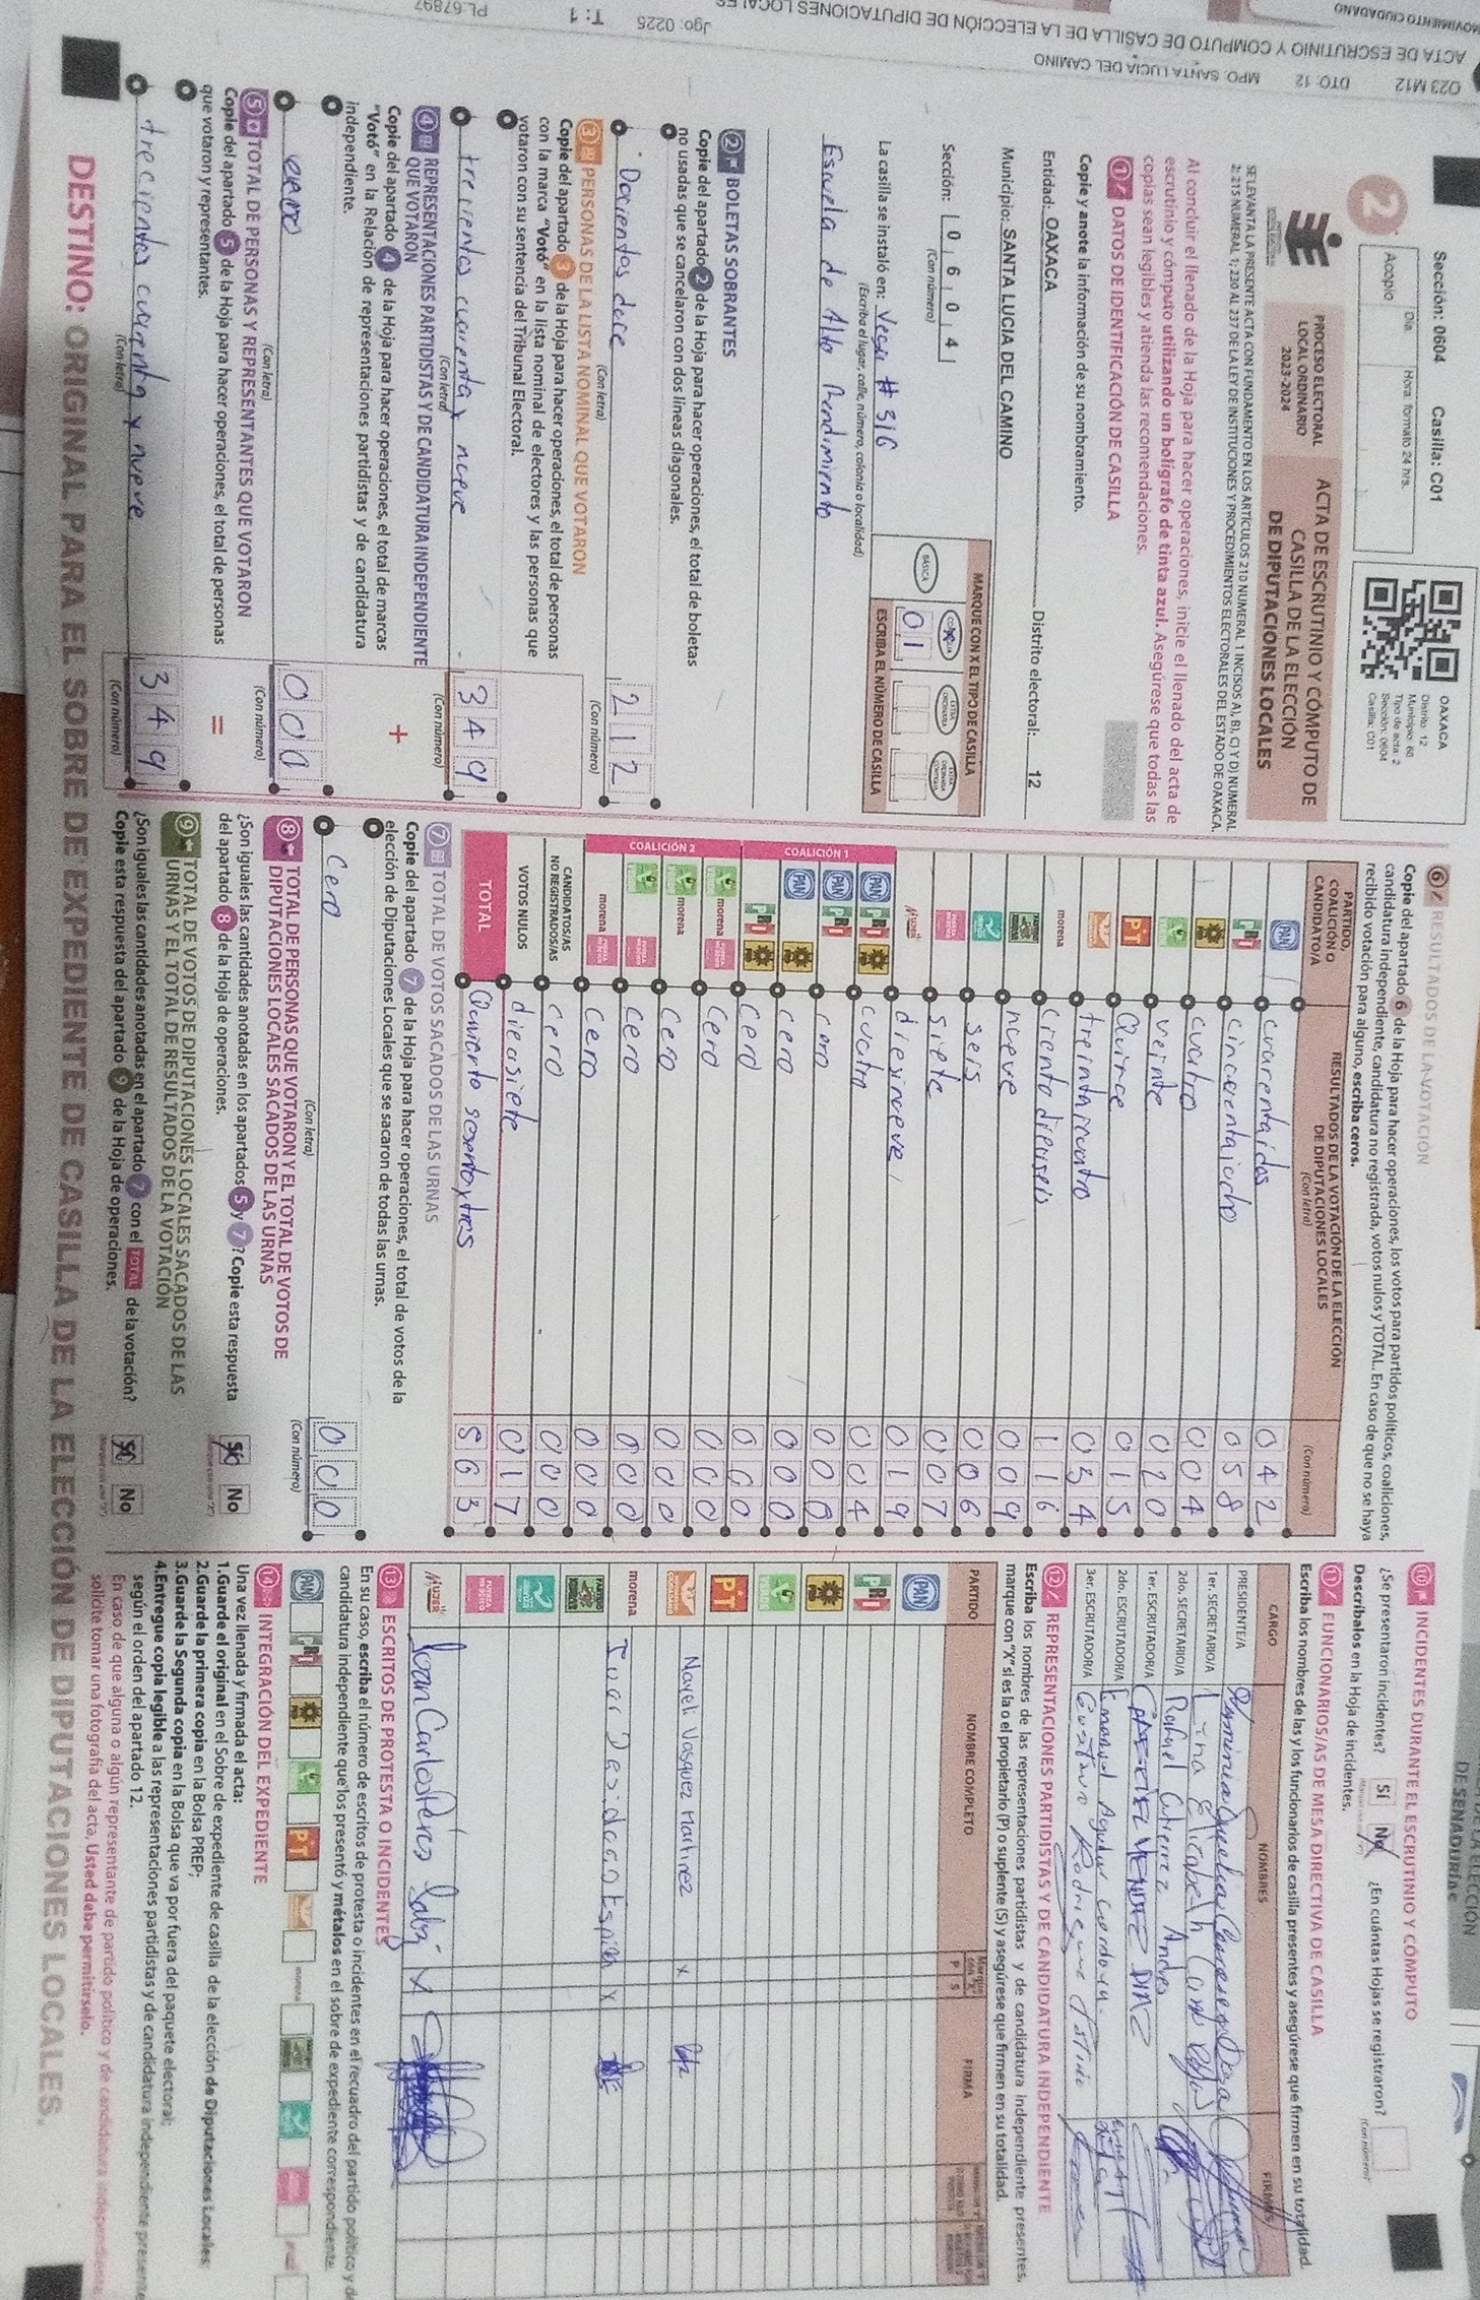 Sección: 0604 Casilla: C01
Día: Hora: formato 24 hrs.
Acopio
OAXACA
Distrito: 12
Municipio: 60
Tipo de acta: 2
Sección: 0604
Casilla: C01
2
PROCESO ELECTORAL
LOCAL ORDINARIO
2023-2024
ACTA DE ESCRUTINIO Y CÓMPUTO DE
CASILLA DE LA ELECCIÓN
DE DIPUTACIONES LOCALES
SE LEVANTA LA PRESENTE ACTA CON FUNDAMENTO EN LOS ARTÍCULOS 210 NUMERAL 1 INCISOS A), B), C) Y D) NUMERAL
2; 215 NUMERAL 1; 230 AL 237 DE LA LEY DE INSTITUCIONES Y PROCEDIMIENTOS ELECTORALES DEL ESTADO DE OAXACA.
Al concluir el llenado de la Hoja para hacer operaciones, inicie el llenado del acta de
escrutinio y cómputo utilizando un bolígrafo de tinta azul. Asegúrese que todas las
copias sean legibles y atienda las recomendaciones.
1 DATOS DE IDENTIFICACIÓN DE CASILLA
Copie y anote la información de su nombramiento.
Entidad: OAXACA Distrito electoral: 12
Municipio: SANTA LUCIA DEL CAMINO
Sección: 0 6 0 4
(Con número)
MARQUE CON X EL TIPO DE CASILLA
BÁSICA
0 1
ESCRIBA EL NÚMERO DE CASILLA
La casilla se instaló en: Vega # 316
(Escriba el lugar, calle, número, colonia o localidad)
Escuela de Alto Rendimiento
2 BOLETAS SOBRANTES
Copie del apartado 2 de la Hoja para hacer operaciones, el total de boletas
no usadas que se cancelaron con dos líneas diagonales.
Docientos doce 2 1 2
(Con letra) (Con número)
3 PERSONAS DE LA LISTA NOMINAL QUE VOTARON
Copie del apartado 3 de la Hoja para hacer operaciones, el total de personas
con la marca "Votó" en la lista nominal de electores y las personas que
votaron con su sentencia del Tribunal Electoral.
trecientos cuarenta y nueve 3 4 9
(Con letra) (Con número)
4 REPRESENTACIONES PARTIDISTAS Y DE CANDIDATURA INDEPENDIENTE
QUE VOTARON
Copie del apartado 4 de la Hoja para hacer operaciones, el total de marcas
"Votó" en la Relación de representaciones partidistas y de candidatura
independiente.
+
cero 0 0 0
(Con letra) (Con número)
5 TOTAL DE PERSONAS Y REPRESENTANTES QUE VOTARON
Copie del apartado 5 de la Hoja para hacer operaciones, el total de personas
que votaron y representantes.
=
trecientos cuarenta y nueve 3 4 9
(Con letra) (Con número)
6 RESULTADOS DE LA VOTACIÓN
Copie del apartado 6 de la Hoja para hacer operaciones, los votos para partidos políticos, coaliciones,
candidatura independiente, candidatura no registrada, votos nulos y TOTAL. En caso de que no se haya
recibido votación para alguno, escriba ceros.
PARTIDO,
COALICIÓN O
CANDIDATO/A
RESULTADOS DE LA VOTACIÓN DE LA ELECCIÓN
DE DIPUTACIONES LOCALES
(Con letra) (Con número)
PAN cuarentaidos 0 4 2
PRI cincuentaiocho 0 5 8
PRD cuatro 0 0 4
veinte 0 2 0
PT Quince 0 1 5
treinta icuatro 0 3 4
morena ciento dieciseis 1 1 6
nueve 0 0 9
seis 0 0 6
siete 0 0 7
MUJER diesinueve 0 1 9
COALICIÓN 1
PAN PRI PRD cuatro 0 0 4
PAN PRI cero 0 0 0
PAN PRD cero 0 0 0
PRI PRD cero 0 0 0
COALICIÓN 2
morena cero 0 0 0
morena cero 0 0 0
cero 0 0 0
morena cero 0 0 0
CANDIDATOS/AS
NO REGISTRADOS/AS cero 0 0 0
VOTOS NULOS dieasiete 0 1 7
TOTAL Quiento sesenta y tres 5 6 3
7 TOTAL DE VOTOS SACADOS DE LAS URNAS
Copie del apartado 7 de la Hoja para hacer operaciones, el total de votos de la
elección de Diputaciones Locales que se sacaron de todas las urnas.
Cero 0 0 0
(Con letra) (Con número)
8 TOTAL DE PERSONAS QUE VOTARON Y EL TOTAL DE VOTOS DE
DIPUTACIONES LOCALES SACADOS DE LAS URNAS
¿Son iguales las cantidades anotadas en los apartados 5 y 7? Copie esta respuesta
del apartado 8 de la Hoja de operaciones.
Sí No
9 TOTAL DE VOTOS DE DIPUTACIONES LOCALES SACADOS DE LAS
URNAS Y EL TOTAL DE RESULTADOS DE LA VOTACIÓN
¿Son iguales las cantidades anotadas en el apartado 7 con el TOTAL de la votación?
Copie esta respuesta del apartado 9 de la Hoja de operaciones.
Sí No
10 INCIDENTES DURANTE EL ESCRUTINIO Y CÓMPUTO
¿Se presentaron incidentes? Sí No ¿En cuántas Hojas se registraron?
(Con número)
Descríbalos en la Hoja de incidentes.
11 FUNCIONARIOS/AS DE MESA DIRECTIVA DE CASILLA
Escriba los nombres de las y los funcionarios de casilla presentes y asegúrese que firmen en su totalidad.
CARGO NOMBRES FIRMAS
PRESIDENTE/A
1er. SECRETARIO/A
2do. SECRETARIO/A Rafael Gutierrez Andres
1er. ESCRUTADOR/A
2do. ESCRUTADOR/A Emanuel Aguilar Cordova.
3er. ESCRUTADOR/A Gustavo Rodriguez
12 REPRESENTACIONES PARTIDISTAS Y DE CANDIDATURA INDEPENDIENTE
Escriba los nombres de las representaciones partidistas y de candidatura independiente presentes,
marque con "X" si es la o el propietario (P) o suplente (S) y asegúrese que firmen en su totalidad.
PARTIDO NOMBRE COMPLETO P S FIRMA
PAN
PRI
PRD
PT
Nayeli Vasquez Martinez x
morena x
MUJER Joan Carlos Peres X
13 ESCRITOS DE PROTESTA O INCIDENTES
En su caso, escriba el número de escritos de protesta o incidentes en el recuadro del partido político y de
candidatura independiente que los presentó y métalos en el sobre de expediente correspondiente.
PAN PRI PRD PT morena
14 INTEGRACIÓN DEL EXPEDIENTE
Una vez llenada y firmada el acta:
1.Guarde el original en el Sobre de expediente de casilla de la elección de Diputaciones Locales;
2.Guarde la primera copia en la Bolsa PREP;
3.Guarde la Segunda copia en la Bolsa que va por fuera del paquete electoral;
4.Entregue copia legible a las representaciones partidistas y de candidatura independiente presente
según el orden del apartado 12.
En caso de que alguna o algún representante de partido político y de candidatura independiente
solicite tomar una fotografía del acta, Usted debe permitírselo.
DESTINO: ORIGINAL PARA EL SOBRE DE EXPEDIENTE DE CASILLA DE LA ELECCIÓN DE DIPUTACIONES LOCALES.
MOVIMIENTO CIUDADANO
ACTA DE ESCRUTINIO Y COMPUTO DE CASILLA DE LA ELECCIÓN DE DIPUTACIONES LOCALES
O23 M12 DTO: 12 MPO: SANTA LUCIA DEL CAMINO
Jgo: 0225 T: 1 PL:67897
DE SENADURÍAS